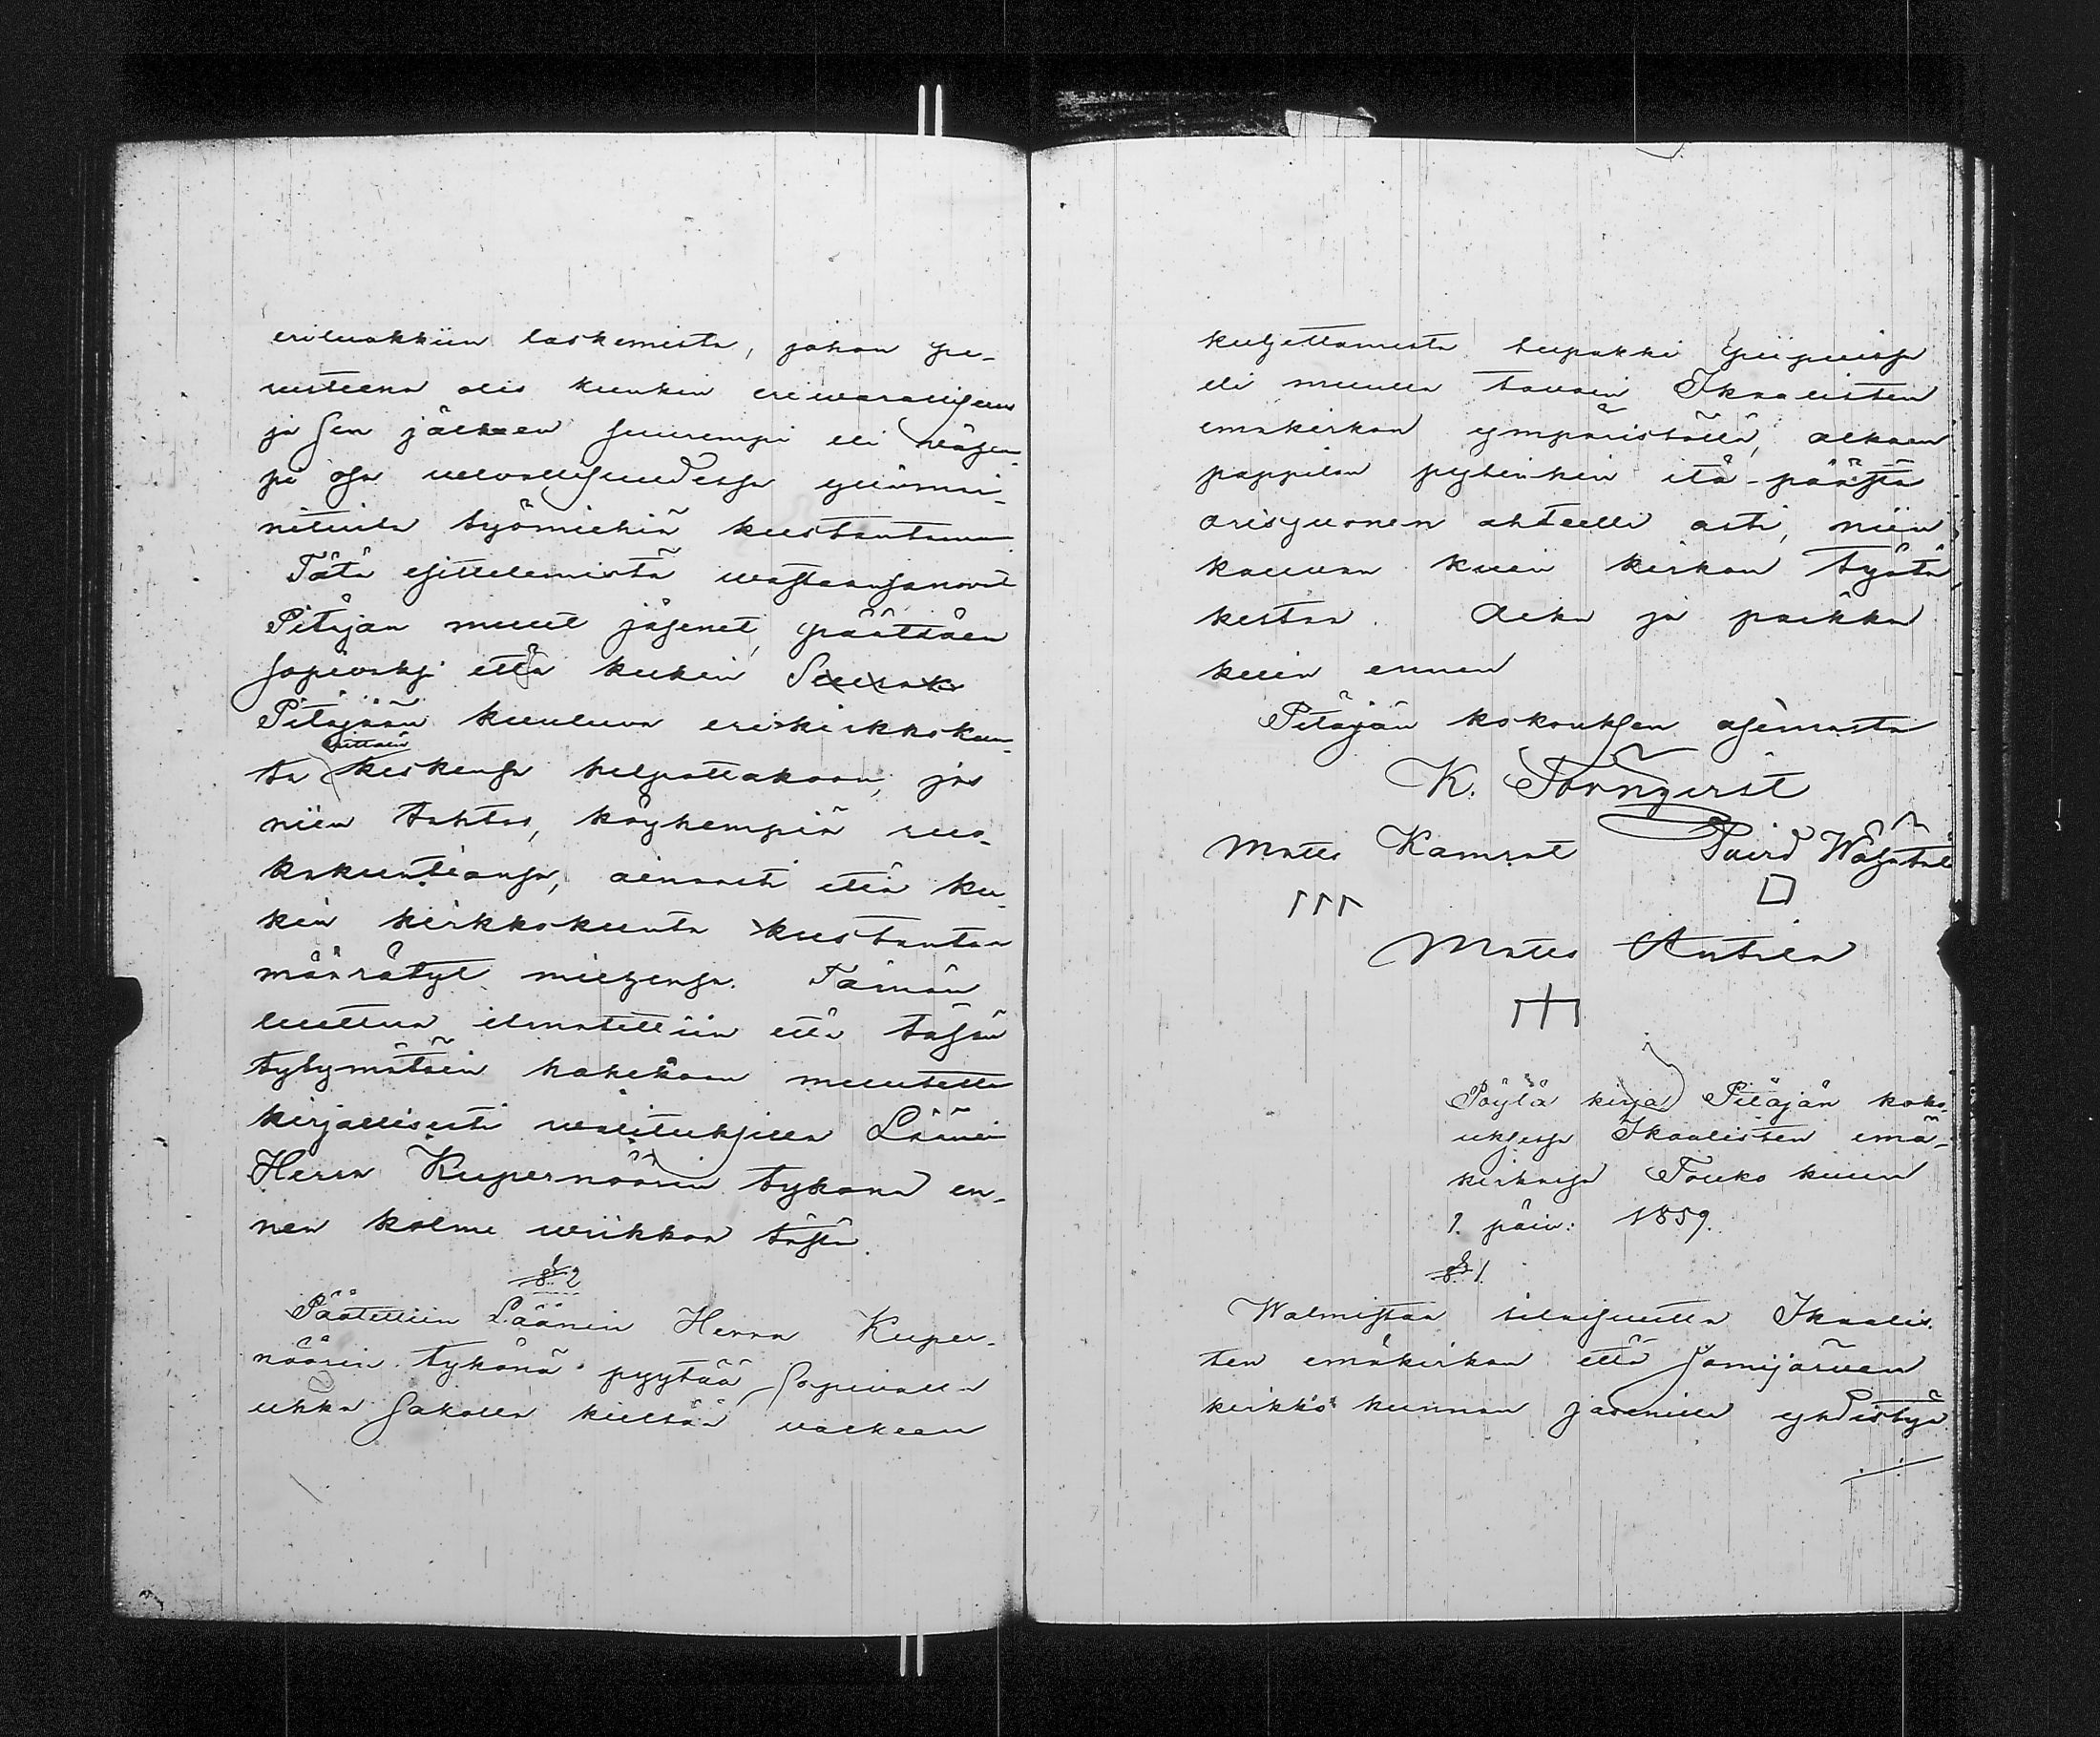 eriluokkiin laskemista, johon pe-
rusteena olis kunkin eriwarallisuus
ja sen jälkeen suurempi eli wähem-
pi osa uelvollisuudessa ylämai-
nituita työmiehiä kustantama.
Tätä esittelemistä wastaansanovat
Pitäjän muut jäsenet, päättäen
sopivaksi että kukin Seurak
Pitäjään kuuluva erikirkkokun-
ta keskensä helpottakoon, jos
niin tahtoo, köyhempiä ruo-
kakuntiansa, ainoasti että ku-
kin kirkkokunta kustantaa
määrätyt miehensä. Tämän
luettua ilmotettiin että tähän
tytymätöin hakekoon muutosta
kirjallisesti valituksilla Läänin
Herra Kupernöörin tykönä en-
nen kolme wiikkoa tästä.
§ 2
Päätettiin Läänin Herra Kuper-
nöörin tykönä pyytää sopivalla
uhka sakolla kieltää valkean
kuljettamista tupakki piipuissa
eli muulla tavoin Ikaalisten
emäkirkon ympäristöllä, alkaen
pappilan itä-päästä
ahteelle asti, niin
kauvan kuin kirkon työtä
kestää. Aika ja paikka
kuin ennen
Pitäjän kokouksen asiemasta
K. Törnqvist
Matts Kamrat
Matts Antila
Pöytä kirja Pitäjän koko-
uksessa Ikaalisten emä-
kirkossa Touko kuun
1. päiv: 1859.
§ 1
Walmistaa tilaisuutta Ikaalis-
ten emäkirkon että Jämijärven
kirkko kunnan jäsenille yhdistyä
./.